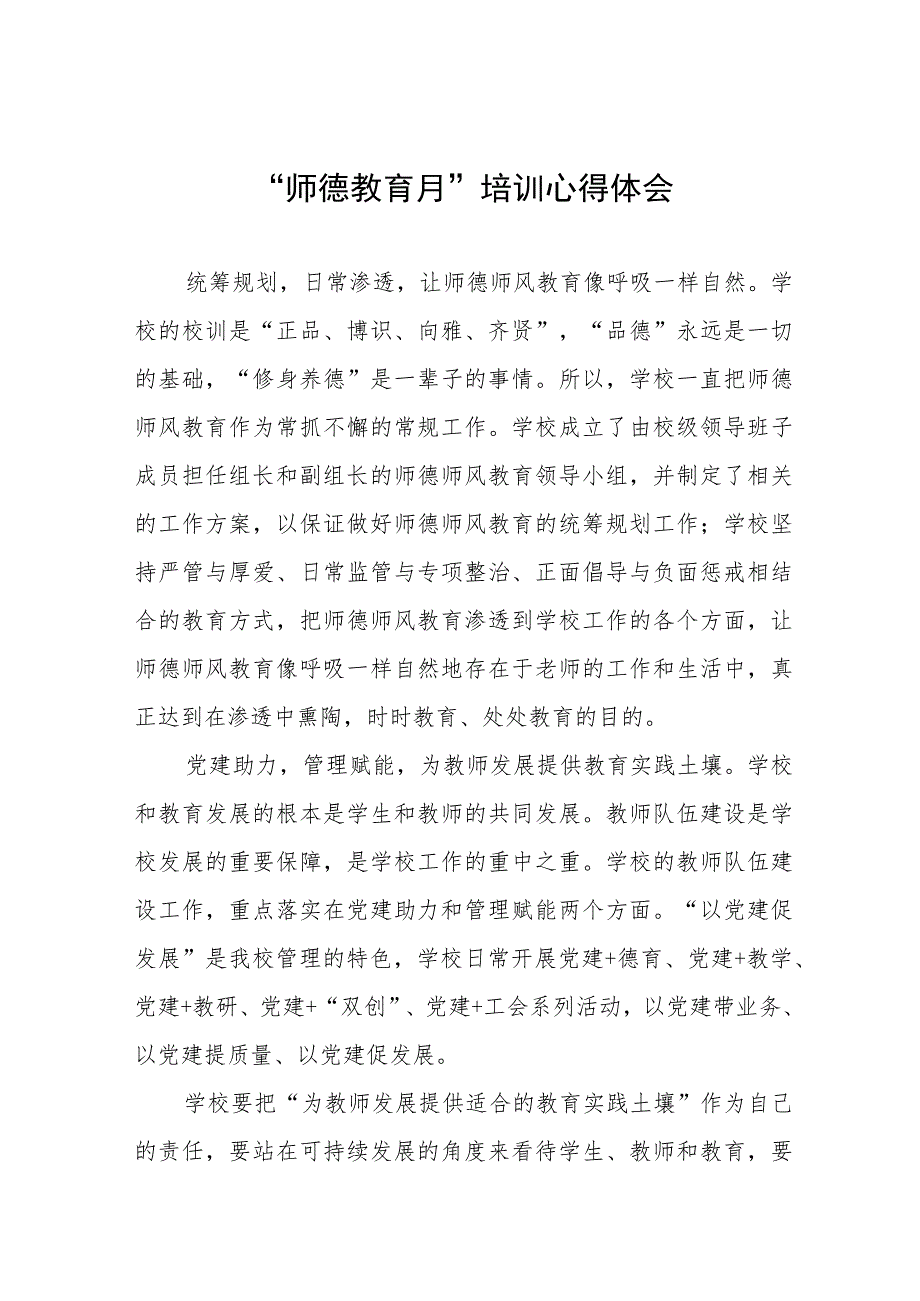 “师德教育月”培训心得体会
统筹规划，日常渗透，让师德师风教育像呼吸一样自然。学
校的校训是“正品、博识、向雅、齐贤”，“品德”永远是一切
的基础，“修身养德”是一辈子的事情。所以，学校一直把师德
师风教育作为常抓不懈的常规工作。学校成立了由校级领导班子
成员担任组长和副组长的师德师风教育领导小组，并制定了相关
的工作方案，以保证做好师德师风教育的统筹规划工作；学校坚
持严管与厚爱、日常监管与专项整治、正面倡导与负面惩戒相结
合的教育方式，把师德师风教育渗透到学校工作的各个方面，让
师德师风教育像呼吸一样自然地存在于老师的工作和生活中，真
正达到在渗透中熏陶，时时教育、处处教育的目的。
党建助力，管理赋能，为教师发展提供教育实践土壤。学校
和教育发展的根本是学生和教师的共同发展。教师队伍建设是学
校发展的重要保障，是学校工作的重中之重。学校的教师队伍建
设工作，重点落实在党建助力和管理赋能两个方面。“以党建促
发展”是我校管理的特色，学校日常开展党建+德育、党建+教学、
党建+教研、党建+“双创”、党建+工会系列活动，以党建带业务、
以党建提质量、以党建促发展。
学校要把“为教师发展提供适合的教育实践土壤”作为自己
的责任，要站在可持续发展的角度来看待学生、教师和教育，要